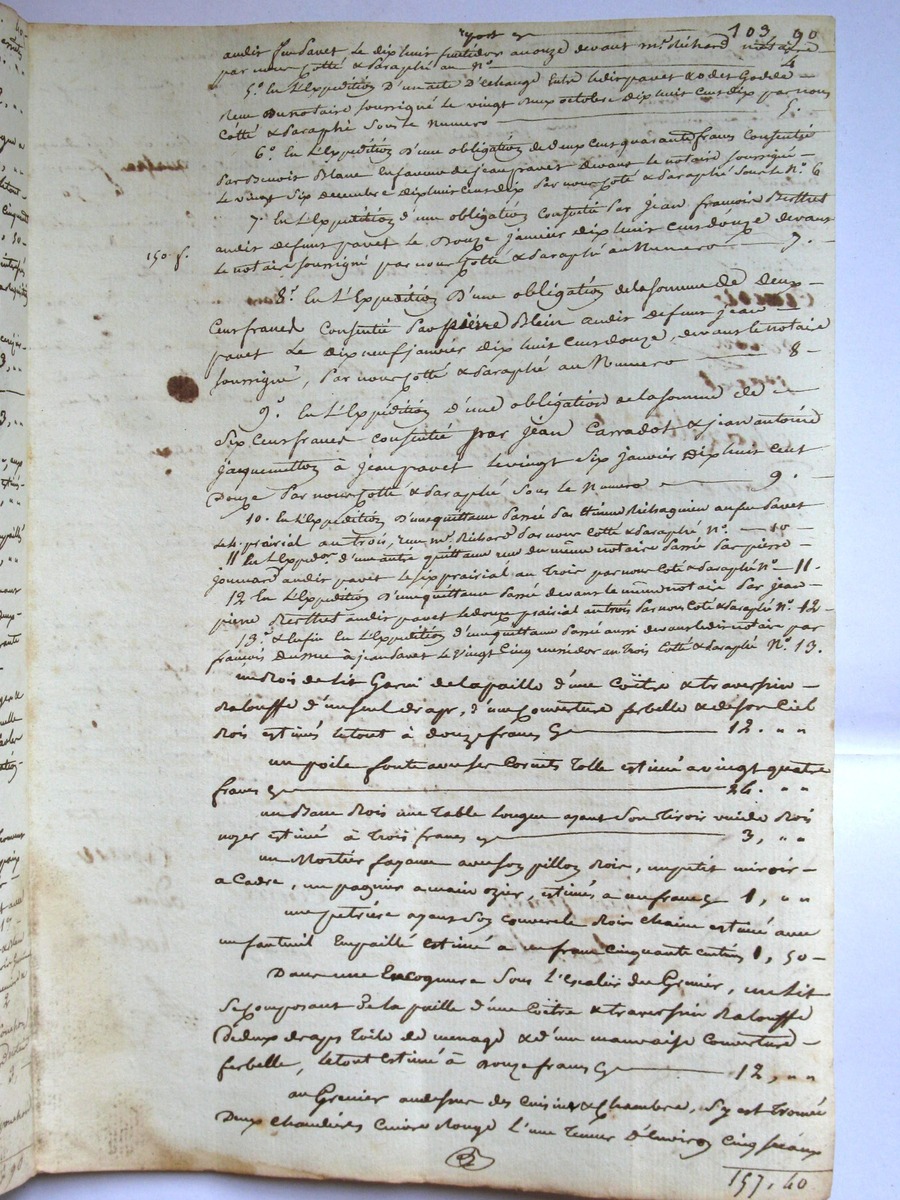 report 103 90
audit feu Pavet le dix huit fructidor an onze devant mr. Richard notaire
par nous Cotté & Paraphé au N.o 4
5.o En L'Expédition D'un acte D'echange Entre ledit pavet &
Reçu Du notaire soussigné le vingt deux octobre dix huit cent dix par nous
Côtté & Paraphé sous le numero 5.
6.o En L'Expédition D'une obligation de deux Cent quarante francs Consentie
Par Benoit Blanc En faveur de jean pavet devant le notaire soussigné
le vingt Six decembre dix huit cent dix Par nous Cotté & Paraphé sous le N.o 6
7.o En L'Expédition d'une obligation Consentie Par Jean françois Berthet
audit defunt pavet le Douze janvier dix huit cent douze devant
150 f. le notaire soussigné par nous Cotté & Paraphé au Numero 7.
8.o En L'Expédition D'une obligation de la somme de deux
Cent francs Consentie Par pierre Blein audit defunt jean
pavet Le dix neuf janvier dix huit Cent douze, devant le notaire
soussigné, Par nous Cotté & Paraphé au Numero 8
9.o En L'Expédition D'une obligation de la somme de
Six Cent francs consentie par jean Carradot & jean antoine
jacquemetton à jean pavet le vingt Six Janvier dix huit Cent
Douze Par nous Cotté & Paraphé sous le Numero 9.
10. En L'Expédition D'une quittance Passée Par au feu Pavet
le 4 prairial an trois, reçue mr. Richard Par nous Cotté & Paraphé N.o 10
11 En L'Exped.on d'une autre quittance reçue du même notaire Passée Par pierre
joumard audit pavet le six prairial an Trois par nous Coté & Paraphé N.o 11.
12 En L'Expédition D'une quittance Passée devant le même notaire Par jean
pierre Berthet audit pavet le douze prairial an trois Par nous Coté & Paraphé N.o 12
13.o & Enfin En L'Expédition d'une quittance Passée aussi devant ledit notaire par
françois à jean Pavet le Vingt Cinq messidor an trois Cotté & Paraphé N.o 13.
un Bois de lit Garni de la paille d'une Coëtre & traversin
Balouffe d'un seul drap, d'une Couverture ferbelle & de son Ciel
Bois estimés le tout à douze francs 12. " "
un poile fonte avec ses Cornets Tolle estimé a vingt quatre
francs 24. " "
un Banc Bois une Table Longue ayant Son Tiroir vuide Bois
noyer estimé à Trois francs 3, " "
un Mortier fayance avec son pillon Bois, un petit miroir
a Cadre, un pagnier a main ozier, estimés a un franc 1, " "
une petrière ayant son couvercle Bois Chaine estimé avec
un fauteuil Empaillé estimée a un franc Cinquante Centimes 1, 50
Dans une Encognure Sous L'escalier du Grenier, un Lit
Se Composant De la paille d'une Coëtre & traversin Balouffe
De deux draps Toile de menage & d'une mauvaise Couverture
ferbelle, le tout Estimé à Douze francs 12, " "
au Grenier au dessus des Cuisine & Chambre, S'y est Trouvé
Deux chaudières Cuivre Rouge L'une Tenant D'Environ Cinq seaux
157, 40